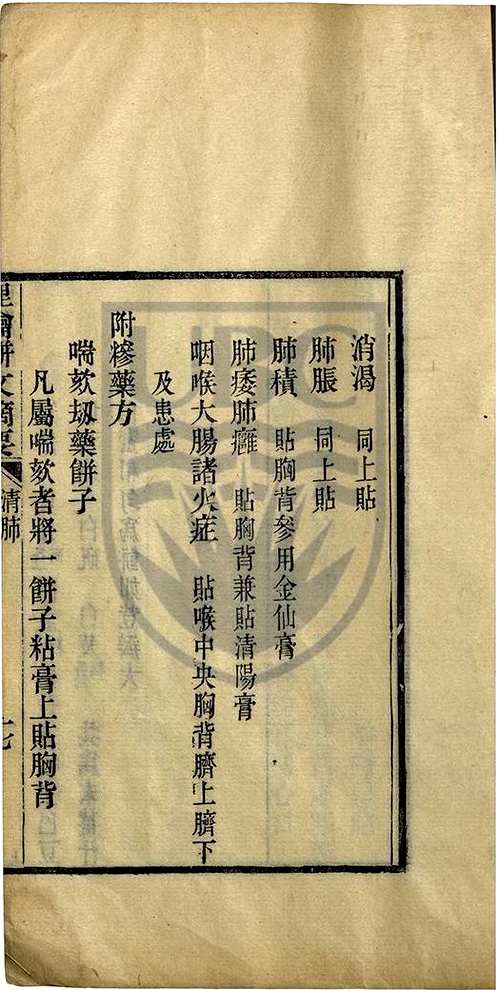 消渴 同上貼
肺脹 同上貼
肺積 貼胸背參用金仙膏
肺痿肺癰 貼胸背兼貼清陽膏
咽喉大腸諸火症 貼喉中央胸背臍上臍下
及患處
附糝藥方
喘欬劫藥餅子
凡屬喘欬者將一餅子粘膏上貼胸背
文摘要 清肺
UBC